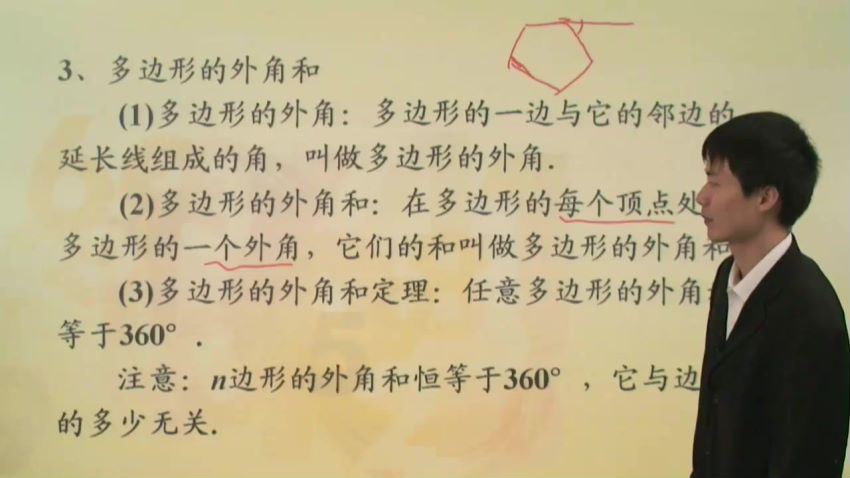 3、多边形的外角和
(1)多边形的外角：多边形的一边与它的邻边的
延长线组成的角，叫做多边形的外角.
(2)多边形的外角和：在多边形的每个顶点处
多边形的一个外角，它们的和叫做多边形的外角和
(3)多边形的外角和定理：任意多边形的外角
等于360°.
注意：n边形的外角和恒等于360°，它与边
的多少无关.